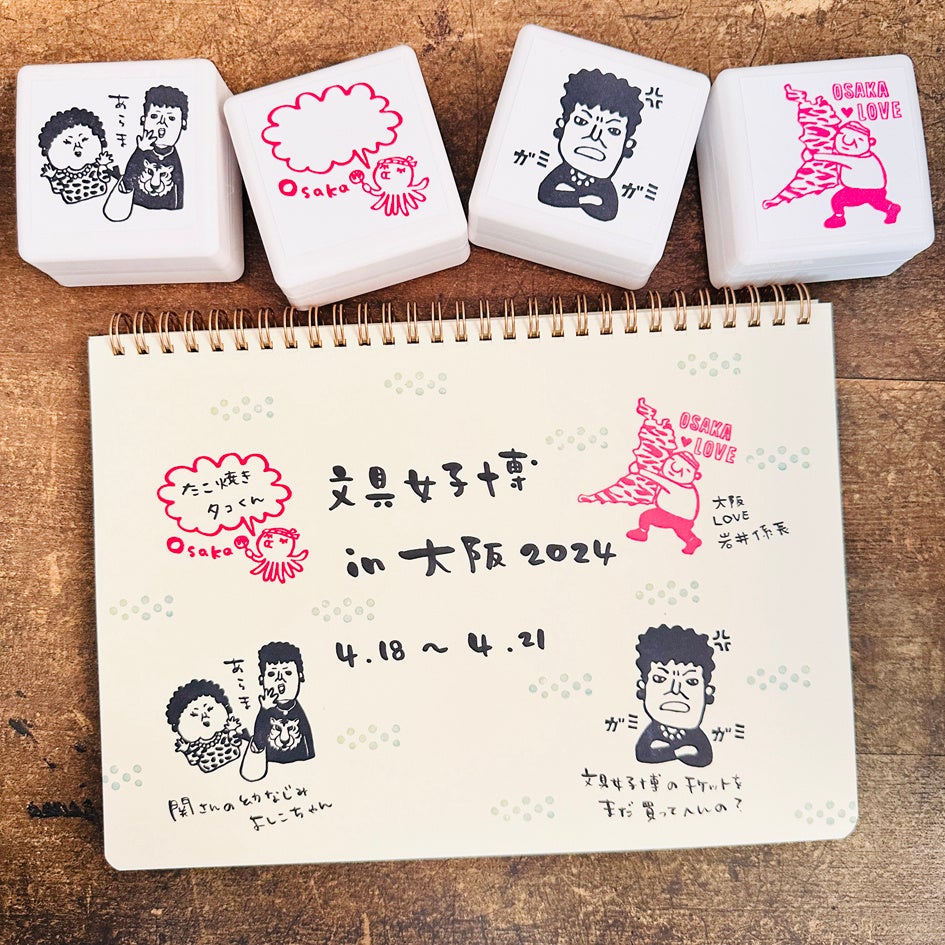 あらま
Osaka
ガミ
ガミ
OSAKA
♥LOVE
たこ焼き
タコくん
Osaka
文具女子博
in 大阪 2024
4.18 〜 4.21
OSAKA
♥LOVE
大阪
LOVE
岩井係長
あらま
関さんの幼なじみ
よしこちゃん
ガミ
ガミ
文具女子博のチケットを
まだ買ってへんの？